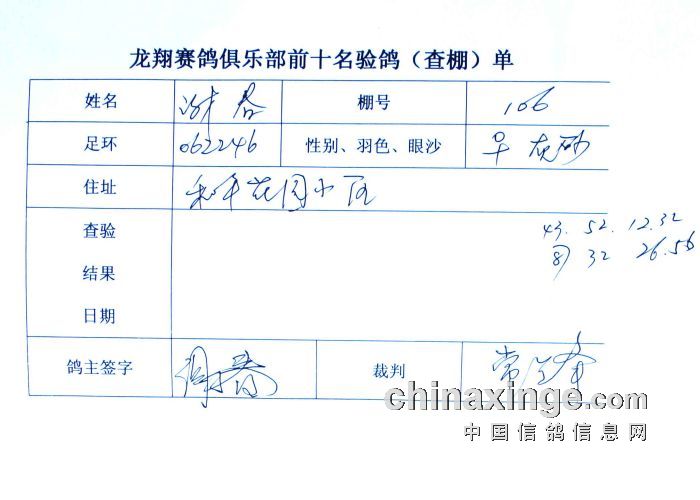 龙翔赛鸽俱乐部前十名验鸽（查棚）单
姓名 谢春 棚号 106
足环 062246 性别、羽色、眼沙 早 灰 砂
住址 和平花园小区
查验
43. 52. 12.32
⑧ 32 26.56
结果
日期
鸽主签字 谢春 裁判 常
chinaxinge.com
中国信鸽信息网